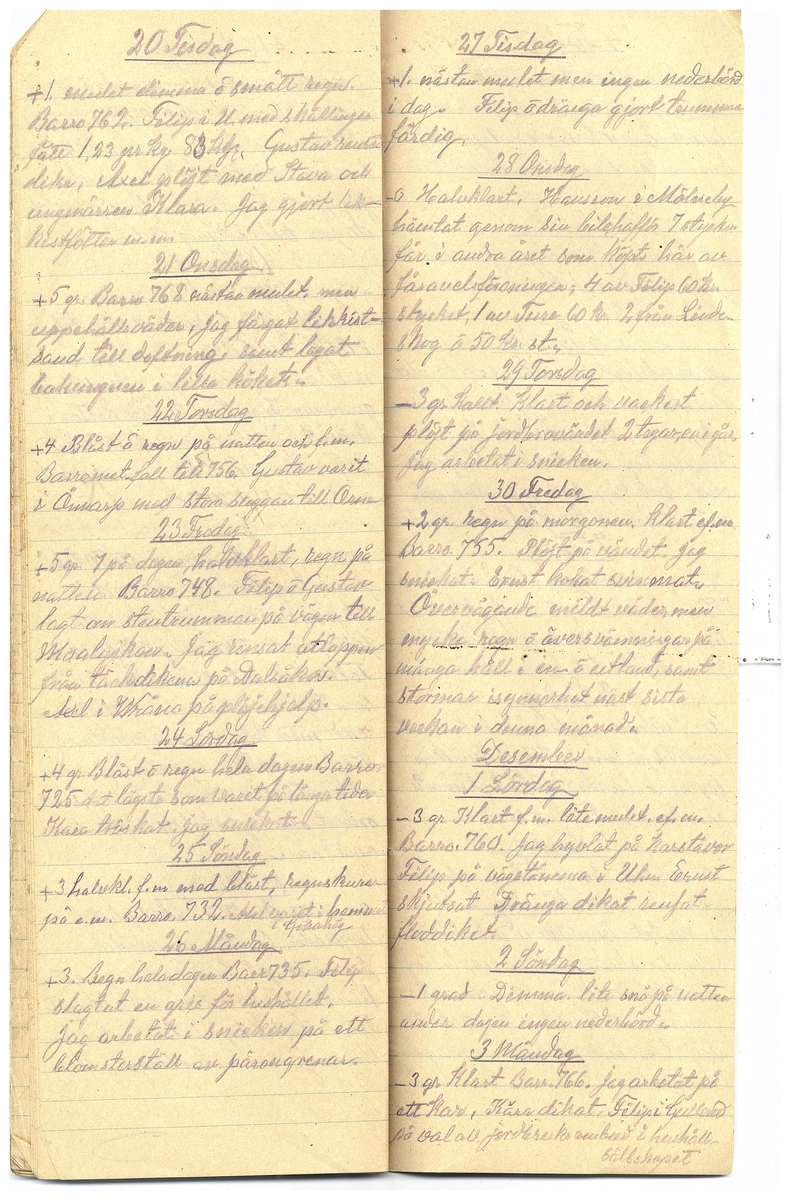 20 Tisdag
+1. mulet dimma ö smått regn.
Barro 762. Filip i U. med skällingar
fått 1,23 pr kg 83 kg. Gustav rensat
dike, Axel plöjt med Stava och
ungmärren Klara. Jag gjort lik-
kistfötter m.m.
21 Onsdag
+5 gr. Barro 768 nästan mulet, men
uppehållsväder, jag färgat likkist-
sand till doftning, samt lagat
bakugnen i lilla köket.
22 Torsdag
+4 Blåst ö regn på natten och f.m.
Barromet. fall till 756. Gustav varit
i Önnarp med stora suggan till Orne
23 Fredag
+5 gr. 7 på dagen, halvklart, regn på
natten Barro 748. Filip ö Gustav
lagt om stentrumman på vägen till
Jag rensat utloppen
från täckdikena på Dalsåker.
Axel i Wråna på plöjehjelp.
24 Lördag
+4 gr. Blåst ö regn hela dagen Barro
725 det lägsta som varit på långa tider
Kara tröskat, jag snickrat.
25 Söndag
+3 halvkl. f.m med blåst, regnskurar
på e.m. Barro. 732. Axel varit hemma
i
26 Måndag
+3. Regn hela dagen Barr 735. Filip
slagtat en gris för hushållet.
Jag arbetat i snickeri på ett
blomsterställ av pärongrenar.
27 Tisdag
+1. nästan mulet men ingen nederbörd
i dag. Filip ö dränga gjort trumma
färdig.
28 Onsdag
-0 Halvklart. Hansson i Mölneby
hämtat genom sin bilchafför 7 stycken
får i andra året som köpts här av
fåravelsföreningen; 4 av Filip 60 kr.
stycket, 1 av Ture 60 kr. 2 från Linde-
skog ö 50 kr. st.
29 Torsdag
-3 gr. halvt klart och vackert
plöjt på 2 tegar, en igår,
Jag arbetet i snickeri.
30 Fredag
+2 gr. regn på morgonen. Klart ef.m
Barro. 755. Plöjt på vändet. Jag
snickrat. Ernst kokat svinmat.
Övervägande mildt väder, men
mycke regn ö översvämningar på
många håll i in ö utland, samt
stormar isynnerhet näst sista
veckan i denna månad.
Desember
1 Lördag
-3 gr. Klart f.m. lite mulet. ef.m.
Barro. 760. Jag hyvlat på karstäver
Filip på vägstämma i Ulm Ernst
skjutsat Dränga dikat rensat
floddiket.
2 Söndag
-1 grad Dimma. lite snö på natten
under dagen ingen nederbörd.
3 Måndag
-3 gr. Klart Barr. 766. Jag arbetat på
ett kar, Kåra dikat. Filip i
på val av jordbruksombud i hushåll-
sällskapet